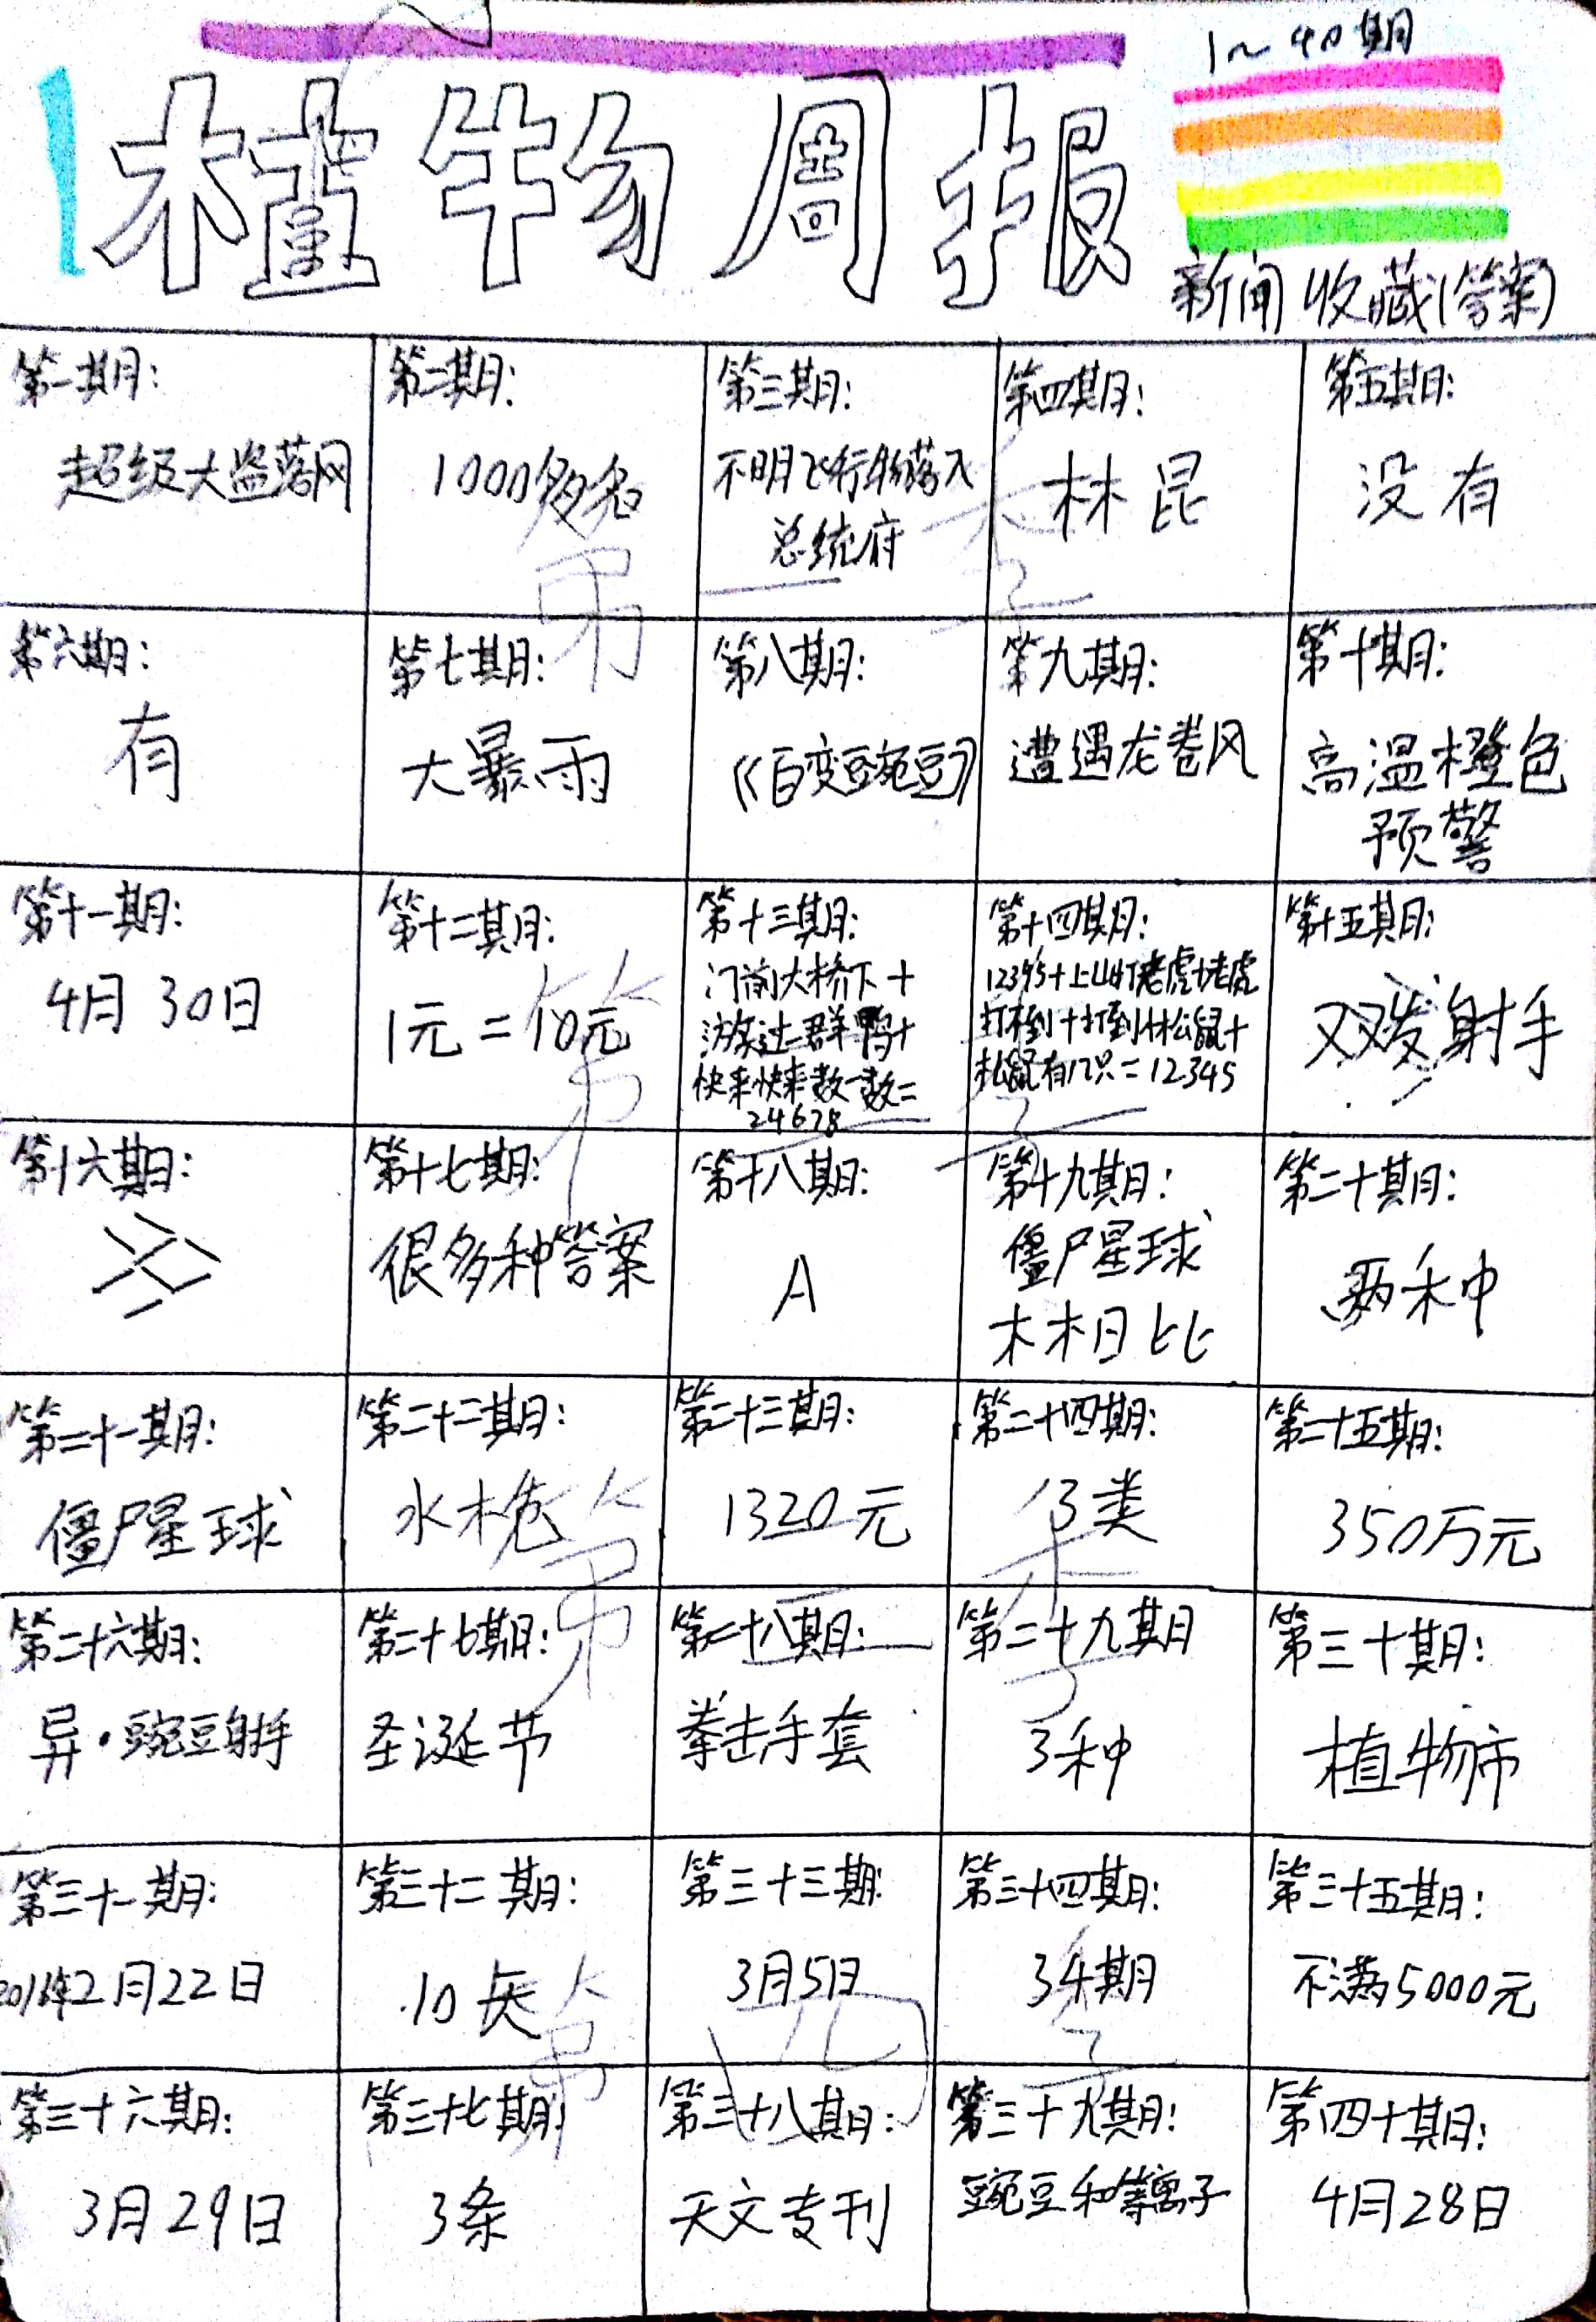 1～40期
植物周报
新闻收藏(答案)
第一期：
超级大盗落网
第二期：
1000多名
第三期：
不明飞行物落入
总统府
第四期：
林昆
第五期：
没有
第六期：
有
第七期：
大暴雨
第八期：
《百变豌豆》
第九期：
遭遇龙卷风
第十期：
高温橙色
预警
第十一期：
4月30日
第十二期：
1元=10元
第十三期：
门前大桥下+
游过一群鸭+
快来快来数一数=
24678
第十四期：
12345+上山打老虎+老虎
打不到+打到小松鼠+
松鼠有几只=12345
第十五期：
双发射手
第十六期：
第十七期：
很多种答案
第十八期：
A
第十九期：
僵尸星球
木木日比
第二十期：
两种
第二十一期：
僵尸星球
第二十二期：
水枪
第二十三期：
1320元
第二十四期：
13类
第二十五期：
350万元
第二十六期：
异·豌豆射手
第二十七期：
圣诞节
第二十八期：
拳击手套
第二十九期
3种
第三十期：
植物市
第三十一期：
2月22日
第三十二期：
10天
第三十三期：
3月5日
第三十四期：
34期
第三十五期：
不满5000元
第三十六期：
3月29日
第三十七期：
3条
第三十八期：
天文专刊
第三十九期：
豌豆和等离子
第四十期：
4月28日